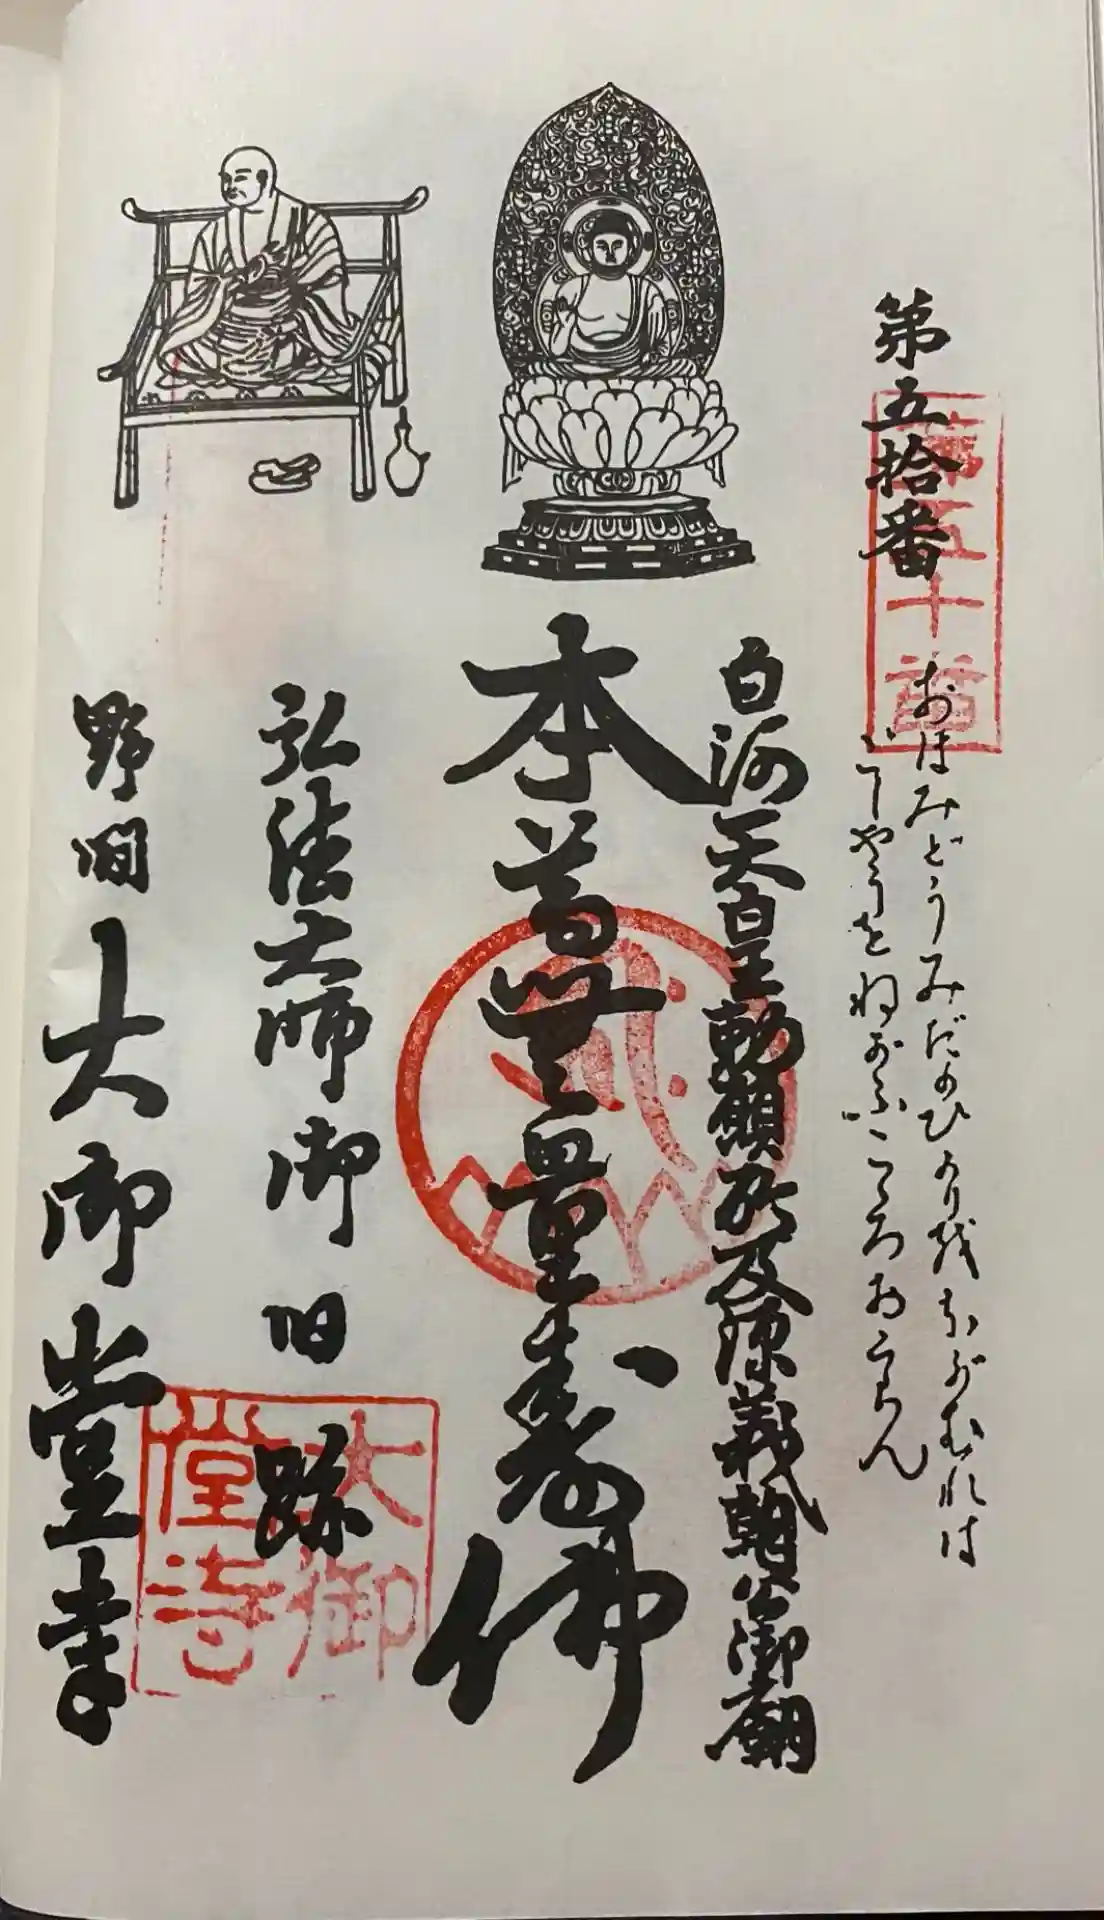 第五拾番
第五十番
おほみどうみだのひかり越おがむれは
ごしやうをねがふこゝろおこらん
白河天皇勅願所及源義朝公御廟
本尊無量寿佛
弘法大師御旧跡
野間大御堂寺
大御
堂寺